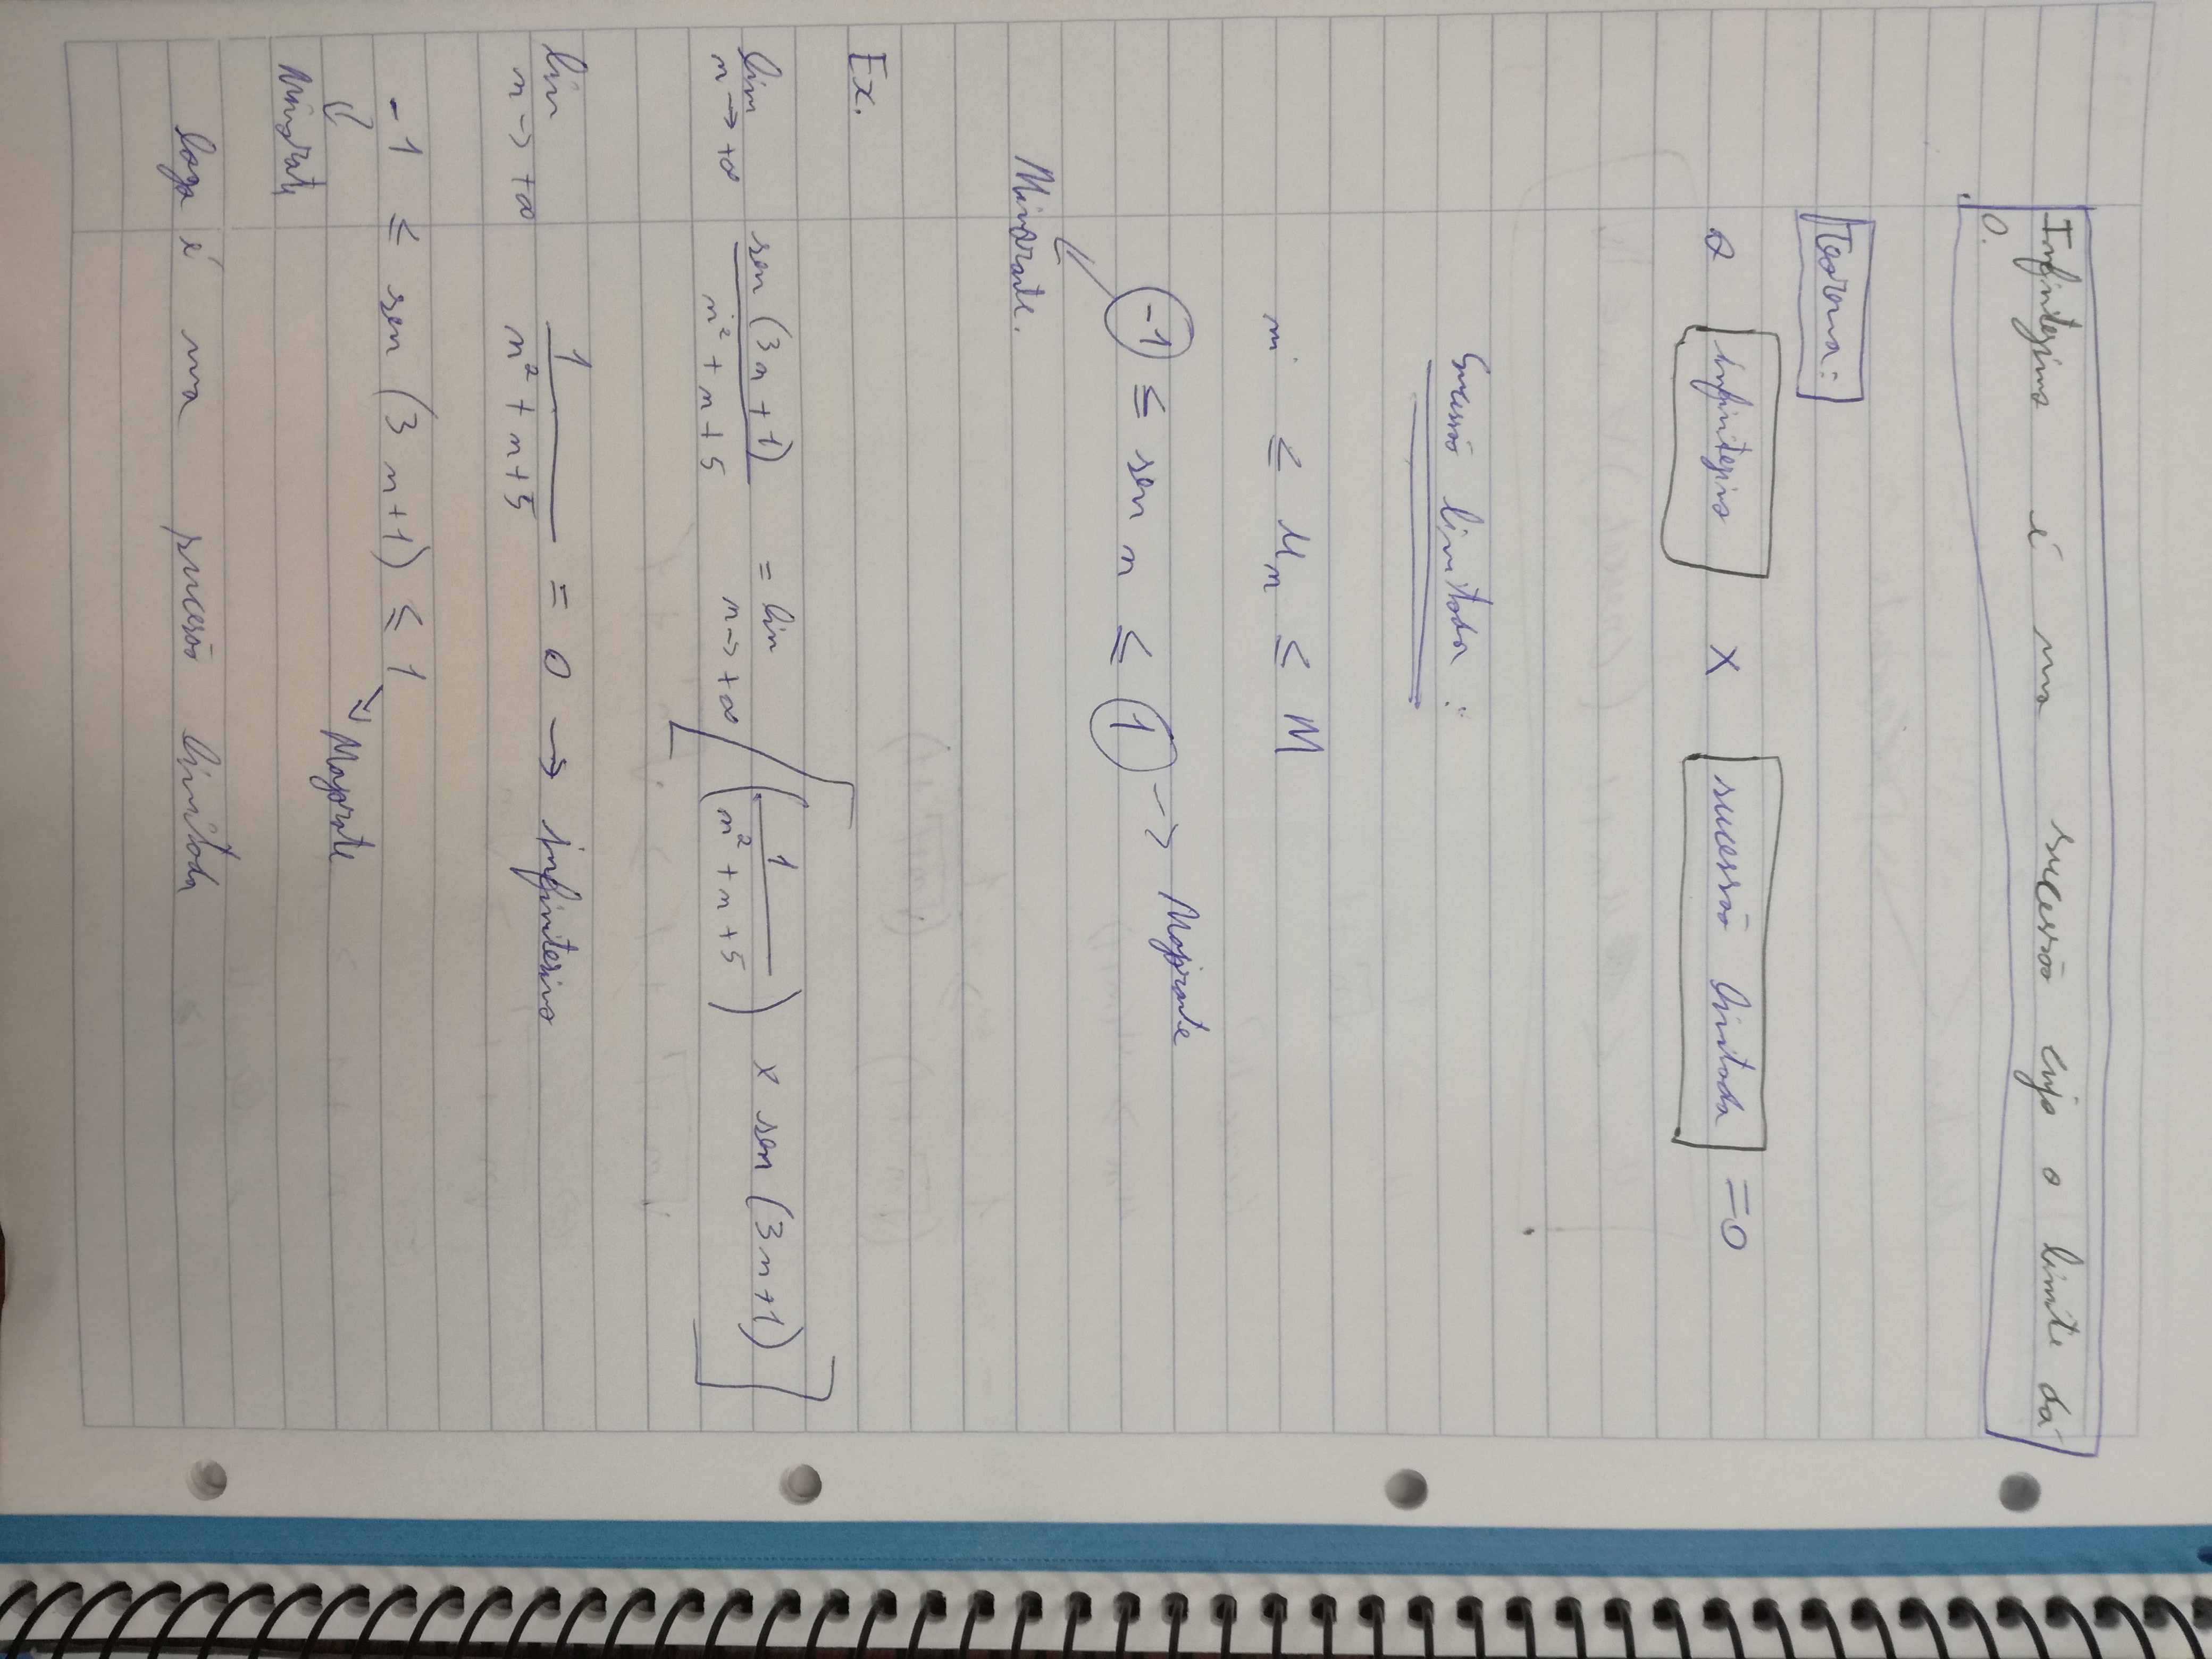 Infinitésimo é uma sucessão cujo o limite dá
0.
Teorema:
O infinitésimo x sucessão limitada = 0
Sucessão limitada:
m ≤ Un ≤ M
-1 ≤ sen n ≤ 1 → Majorante
Minorante.
Ex.
lim n→+∞ sen(3n+1) / n² + n + 5 = lim n→+∞ [(1 / n² + n + 5) x sen(3n+1)]
lim n→+∞ 1 / n² + n + 5 = 0 → infinitésimo
-1 ≤ sen(3n+1) ≤ 1
Minorante → Majorante
logo é uma sucessão limitada